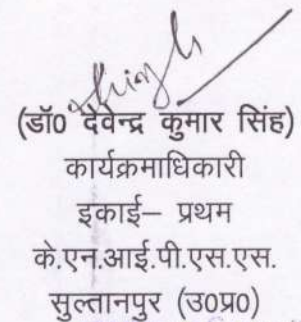 (डॉ0 देवेन्द्र कुमार सिंह)
कार्यक्रमाधिकारी
इकाई– प्रथम
के.एन.आई.पी.एस.एस.
सुल्तानपुर (उ0प्र0)